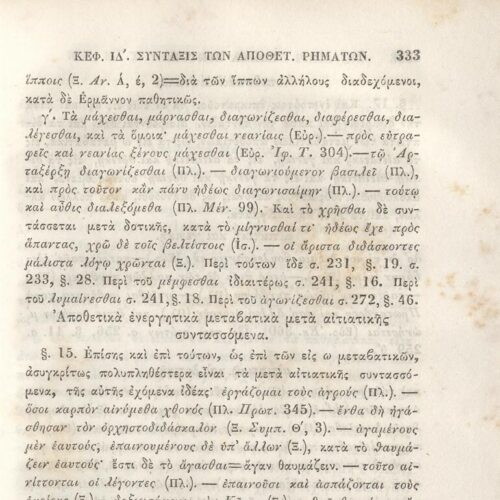 ΚΕΦ. ΙΔ΄. ΣΥΝΤΑΞΙΣ ΤΩΝ ΑΠΟΘΕΤ. ΡΗΜΑΤΩΝ. 333
ἵπποις (Ξ. Αν. Ά, έ, 2)=διὰ τῶν ἵππων ἀλλήλους διαδεχόμενοι,
κατὰ δὲ Ερμάννον παθητικῶς.
γ΄. Τὰ μάχεσθαι, μάρνασθαι, διαγωνίζεσθαι, διαφέρεσθαι, δια-
λέγεσθαι, καὶ τὰ ὅμοια· μάχεσθαι νεανίαις (Εὐρ.).— πρὸς εὐτρα-
φεῖς καὶ νεανίας ξένους μάχεσθαι (Εὐρ. Ἰφ. Τ. 304).—τῷ Ἀρ-
ταξέρξῃ διαγωνίζεσθαι (Πλ.).— διαγωνιούμενον βασιλεῖ (Πλ.),
καὶ πρὸς τοῦτον κἂν πάνυ ἡδέως διαγωνισαίμην (Πλ.).— τούτῳ
καὶ αὖθις διαλεξόμεθα (Πλ. Μέν. 99). Καὶ τὸ χρῆσθαι δὲ συν-
τάσσεται μετὰ δοτικῆς, κατὰ τὸ μίγνυσθαί τι· ἡδέως ἔχε πρὸς
ἅπαντας, χρῶ δὲ τοῖς βελτίστοις (Ισ.).— οἱ ἄριστα διδάσκοντες
μάλιστα λόγῳ χρῶνται (Ξ.). Περὶ τούτων ἴδε σ. 231, §. 19. σ.
233, §. 28. Περὶ τοῦ μέμφεσθαι ἰδιαιτέρως σ. 241, §. 16. Περὶ
τοῦ λυμαίνεσθαι σ. 241, §. 18. Περὶ τοῦ ἀγωνίζεσθαι σ. 272, §. 46.
Ἀποθετικὰ ἐνεργητικὰ μεταβατικὰ μετὰ αἰτιατικῆς
συντασσόμενα.
§. 15. Ἐπίσης καὶ ἐπὶ τούτων, ὡς ἐπὶ τῶν εἰς ω μεταβατικῶν,
ἀσυγκρίτως πολυπληθέστερα εἶναι τὰ μετὰ αἰτιατικῆς συντασσό-
μενα, τῆς αὐτῆς ἐχόμενα ἰδέας· ἐργάζομαι τοὺς ἀγρούς (Πλ.).—
ὅσοι καρπὸν αἰνύμεθα χθονός (Πλ. Πρωτ. 345).— ἔνθα δὴ ἠγά-
σθησαν τὸν ὀρχηστοδιδάσκαλον (Ξ. Συμπ. Θ΄, 3).— ἀγαμένους
μὲν ἑαυτούς, ἐπαινουμένους δὲ ὑπ' ἄλλων (Ξ.), κατὰ τὸ θαυμά-
ζειν ἑαυτούς· ἔστι δὲ τὸ ἄγασθαι=ἄγαν θαυμάζειν.— τοῦτο αἰ-
νίττονται οἱ λέγοντες (Πλ.).— ἐπαινοῦσι καὶ ἀσπάζονται τοὺς